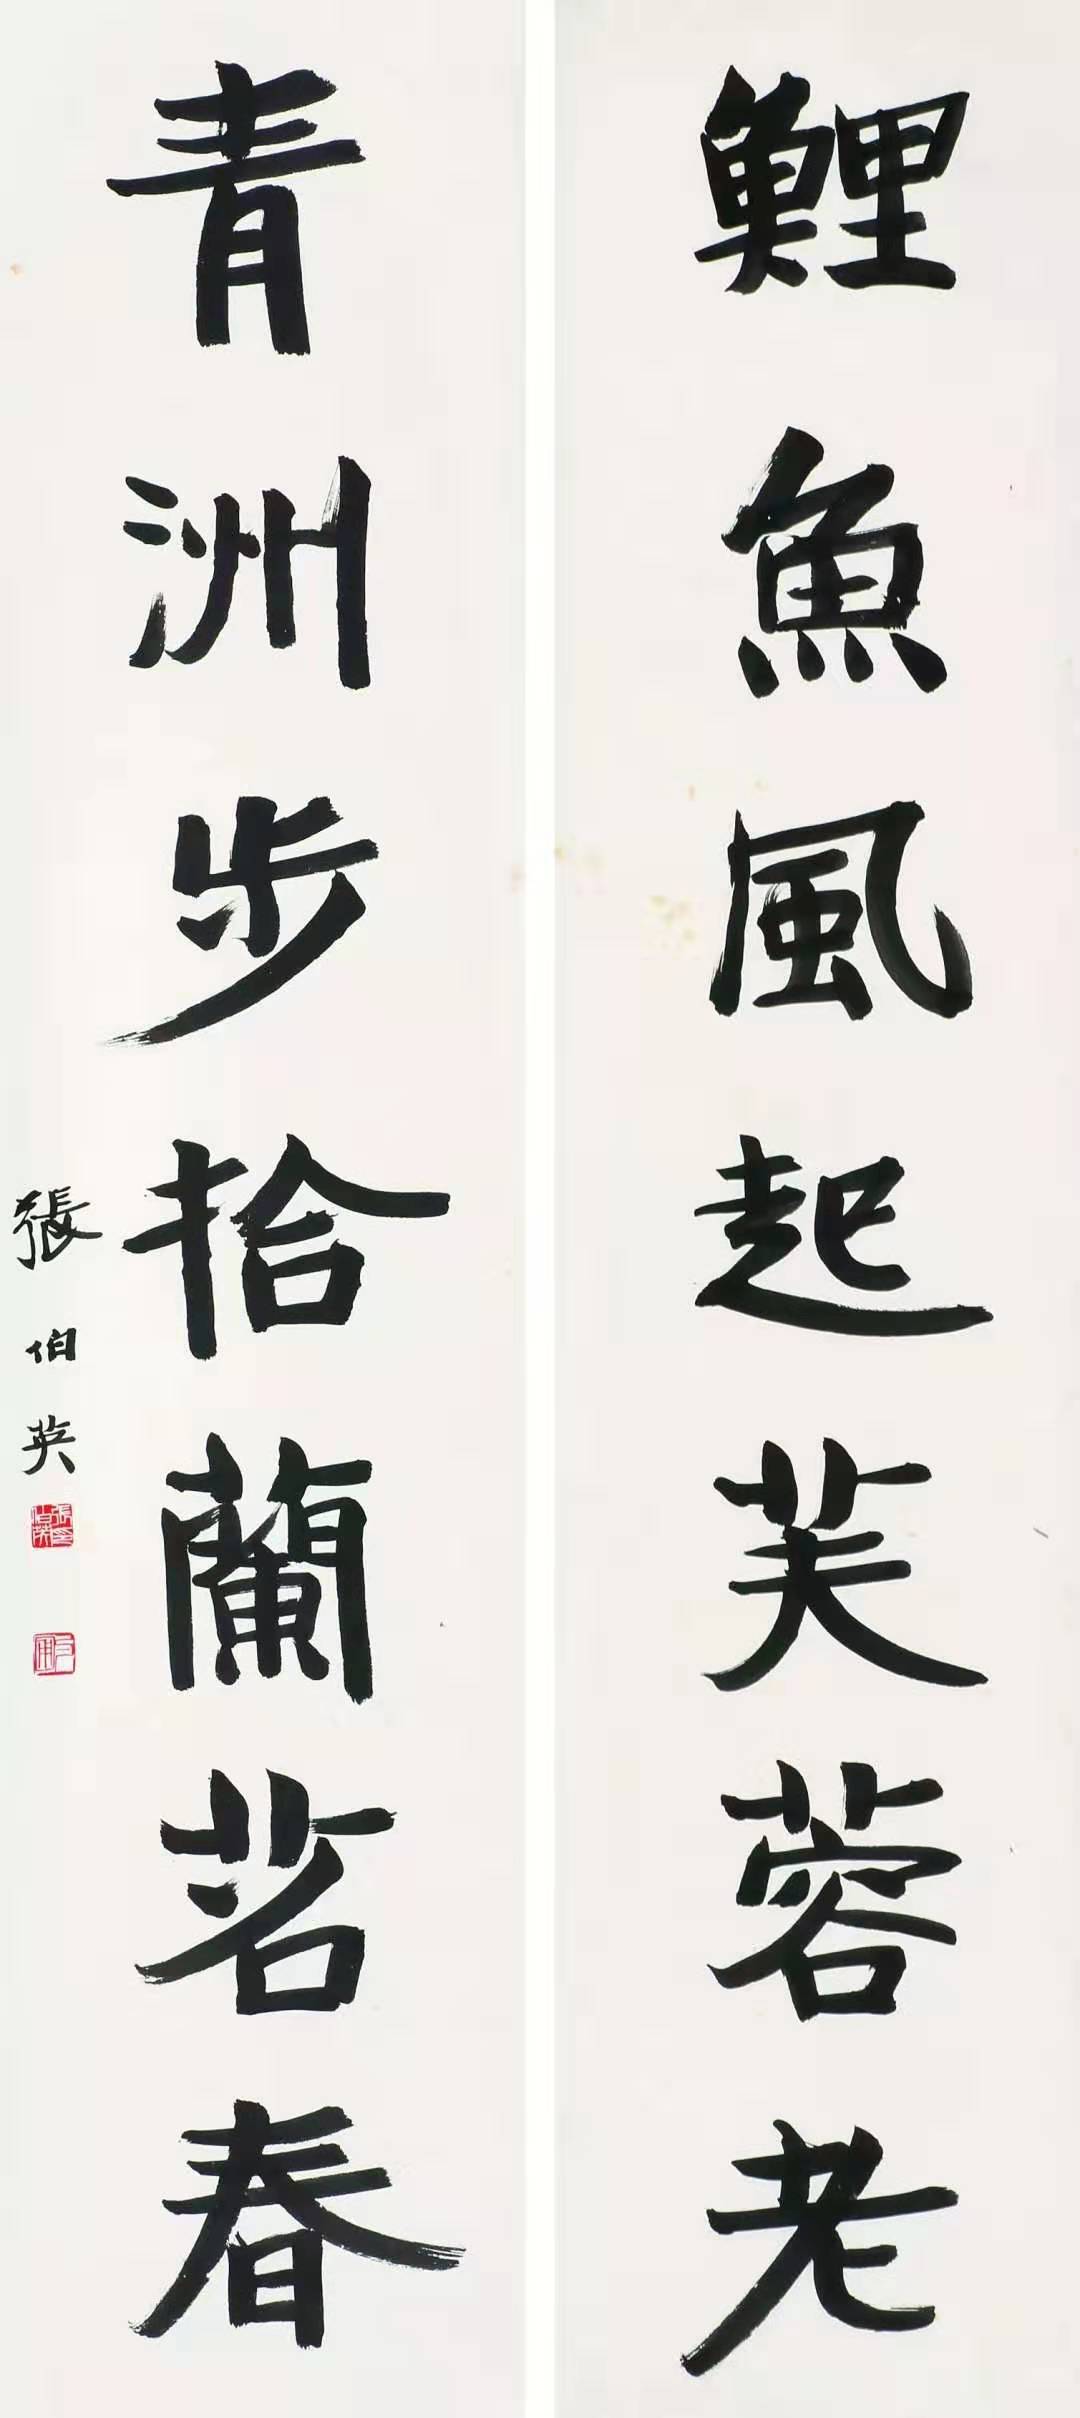 鯉魚風起芙蓉老
青洲步拾蘭苕春
張伯英